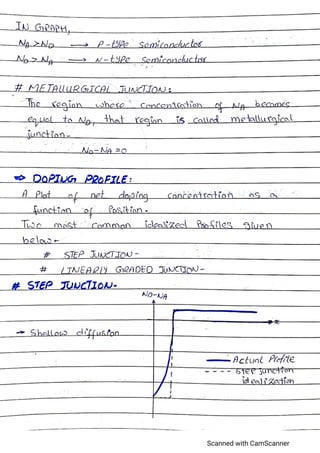 IN GRAPH,
NA > ND → P-type Semiconductor
ND > NA → N-type Semiconductor
# METALLURGICAL JUNCTION:
The region where concentration of NA becomes
equal to ND, that region is called metallurgical
junction.
ND-NA=0
⇒ DOPING PROFILE:
A Plot of net doping concentration as a
function of Position.
Two most common idealized Profiles given
below-
# STEP JUNCTION-
# LINEARLY GRADED JUNCTION-
# STEP JUNCTION-
ND-NA
→ Shallow diffusion
x
Actual Profile
Step junction
idealization
Scanned with CamScanner